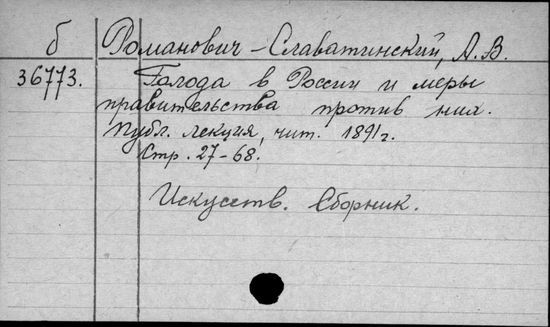 б Романович-Славатинский, А.В.
36773. Голода в России и меры
правительства против них.
Публ. лекция, чит. 1891 г.
Стр. 27-68.
Искусств. Сборник.